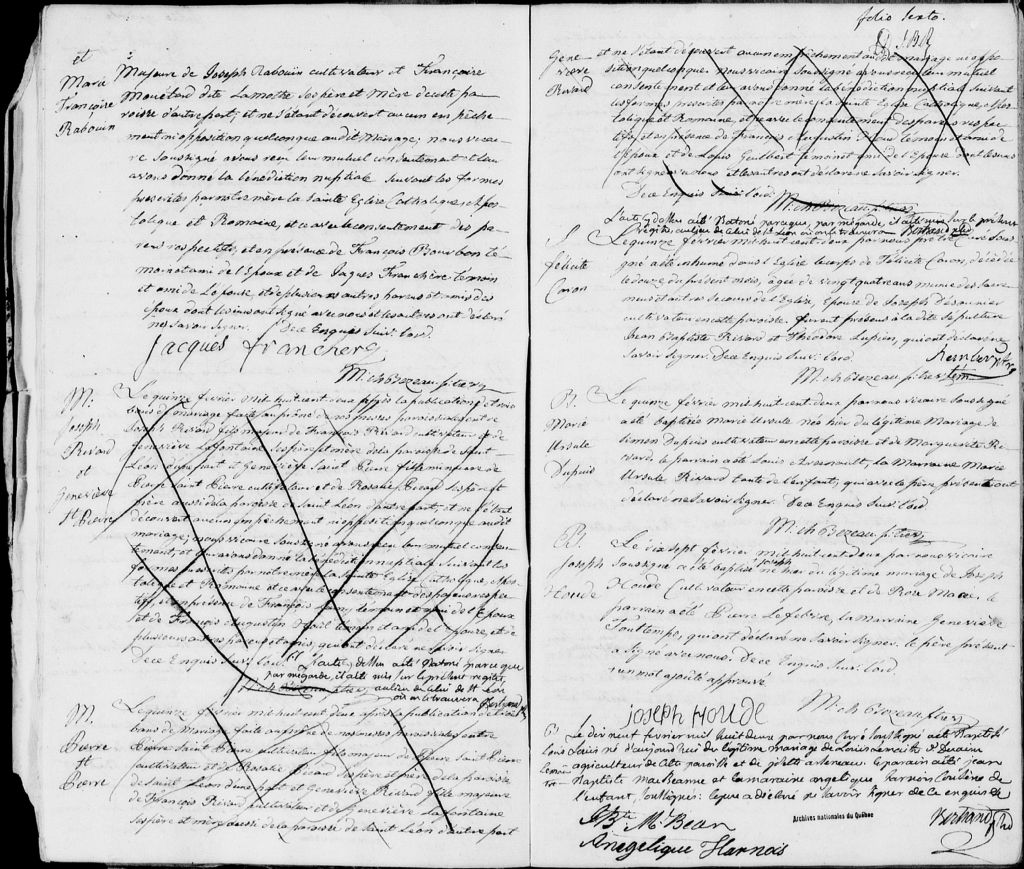 et
Marie
Françoise
Rabouin
Majeure de Joseph Rabouin cultivateur et Françoise
Mouchard dite Lamothe ses père et Mère de cette pa-
roisse d'autre part, et ne s'étant découvert aucun empêche-
ment ni opposition quelconque audit Mariage; nous vicai-
re Soussigné avons reçu leur mutuel consentement et leur
avons donné la bénédiction nuptiale suivant les formes
prescrites par notre mère la Sainte Eglise Catholique, Apos-
tolique et Romaine, et ce avec le consentement des pa-
rens respectifs, et en présence de François Bourbon té-
moin et ami de l'Epoux et de Jaques Franchère témoin
et ami de l'épouse, et de plusieurs autres parens et amis des
époux dont les uns ont signé avec nous et les autres ont déclaré
ne savoir signer. De ce Enquis Suiv. l'ord.
Jacques franchere
M. ch Bezeau ptre vic
M.
Joseph
Rivard
et
Geneviève
St Pierre
Le quinze février mil huit cent deux après la publication de trois
bans de mariage faite au prône de nos messes paroissiales entre
Joseph Rivard fils majeur de François Rivard cultivateur et de
Geneviève Lafontaine ses père et mère de la paroisse de Saint
Léon d'une part, et Geneviève Saint Pierre fille mineure de
Pierre Saint Pierre cultivateur et de Rosalie Picard ses père et
mère aussi de la paroisse de Saint Léon d'autre part, et ne s'étant
découvert aucun empêchement ni opposition quelconque audit
mariage; nous vicaire Soussigné avons reçu leur mutuel consen-
tement, et leur avons donné la bénédiction nuptiale suivant les
formes prescrites par notre mère la Sainte Eglise Catholique, Apos-
tolique et Romaine et ce avec le consentement des parens respec-
tifs, et en présence de François témoin et ami de l'Epoux
et de François Augustin témoin et ami de l'Epouse, et de
plusieurs autres parens et amis, qui ont déclaré ne savoir signer
De ce Enquis Suiv. l'ord. L'acte cy dessus a été Batoné parce que
par mégarde, il a été mis sur le présent registre,
au lieu de celui de St Léon
où on le trouvera Bertrand ptre
M.
Pierre
St
Pierre
Le quinze février mil huit cent deux après la publication de trois
bans de Mariage faite au prône de nos messes paroissiales entre
Pierre Saint Pierre cultivateur fils majeur de Pierre Saint Pierre
cultivateur et de Rosalie Picard ses père et mère de la paroisse
de Saint Léon d'une part et Geneviève Rivard fille majeure
de François Rivard cultivateur et de Geneviève Lafontaine
ses père et mère aussi de la paroisse de Saint Léon d'autre part
folio Sexto.
Gene
vieve
Rivard
et ne s'étant découvert aucun empêchement audit mariage ni oppo-
sition quelconque. Nous vicaire Soussigné avons reçu leur mutuel
consentement et leur avons donné la bénédiction nuptiale suivant
les formes prescrites par notre mère la Sainte Eglise Catholique, Apos-
tolique et Romaine, et ce avec le consentement des parens respec-
tifs, et en présence de François Augustin témoin et ami de
l'Epoux et de Louis Guilbert témoin et ami de l'Epouse dont les uns
ont signé avec nous et les autres ont déclaré ne savoir signer.
De ce Enquis Suiv. l'ord.
M. ch Bezeau ptre vic
L'acte cy dessus a été Batoné parce que, par mégarde, il a été mis sur le présent
Registre, au lieu de celui de St Léon où on le trouvera Bertrand ptre
S.
félicité
Caron
Le quinze février mil huit cent deux par nous prêtre curé Sous-
signé a été inhumé dans l'Eglise le corps de Félicité Caron, décédée
le douze du présent mois, âgée de vingt quatre ans munie des Sacre-
mens et autres Secours de l'Eglise, Epouse de Joseph Désaunier
cultivateur en cette paroisse. furent présens à la dite Sépulture
Jean Baptiste Rivard et Théodore Lupien, qui ont déclaré ne
Savoir Signer. De ce Enquis Suiv. l'ord.
M. ch Bezeau ptre vic
B.
Marie
Ursule
Dupuis
Le quinze février mil huit cent deux par nous vicaire Soussigné
a été baptisée Marie Ursule née hier du légitime Mariage de
Simon Dupuis cultivateur en cette paroisse et de Marguerite Ri-
vard. le parrain a été Louis Arsenault, la Marraine Marie
Ursule Rivard tante de l'enfant, qui avec le père présent ont
déclaré ne Savoir Signer. De ce Enquis Suiv. l'ord.
M. ch Bezeau ptre vic
B.
Joseph
Houde
Le dix sept février mil huit cent deux par nous vicaire
Soussigné a été baptisé Joseph né hier du légitime mariage de Joseph
Houde Cultivateur en cette paroisse et de Rose Mace. le
parrain a été Pierre Lefebvre, la marraine Geneviève
Toutemps, qui ont déclaré ne Savoir Signer. le père présent
a Signé avec nous. De ce Enquis Suiv. l'ord.
un mot ajouté approuvé
M. ch Bezeau ptre vic
joseph Houde
B.
Le dix neuf février mil huit deux par nous curé soussigné a été Baptisé
Louis né d'aujourd'hui du légitime mariage de Louis
agriculteur de cette paroisse et de Arseneau. le parain a été jean
Baptiste MacBeanne et la maraine angelique
l'enfant, soussignés: le père a déclaré ne savoir signer de ce enquis
Bertrand ptre
J Bte Mc Bean
Anegelique Harnois
Archives nationales du Québec